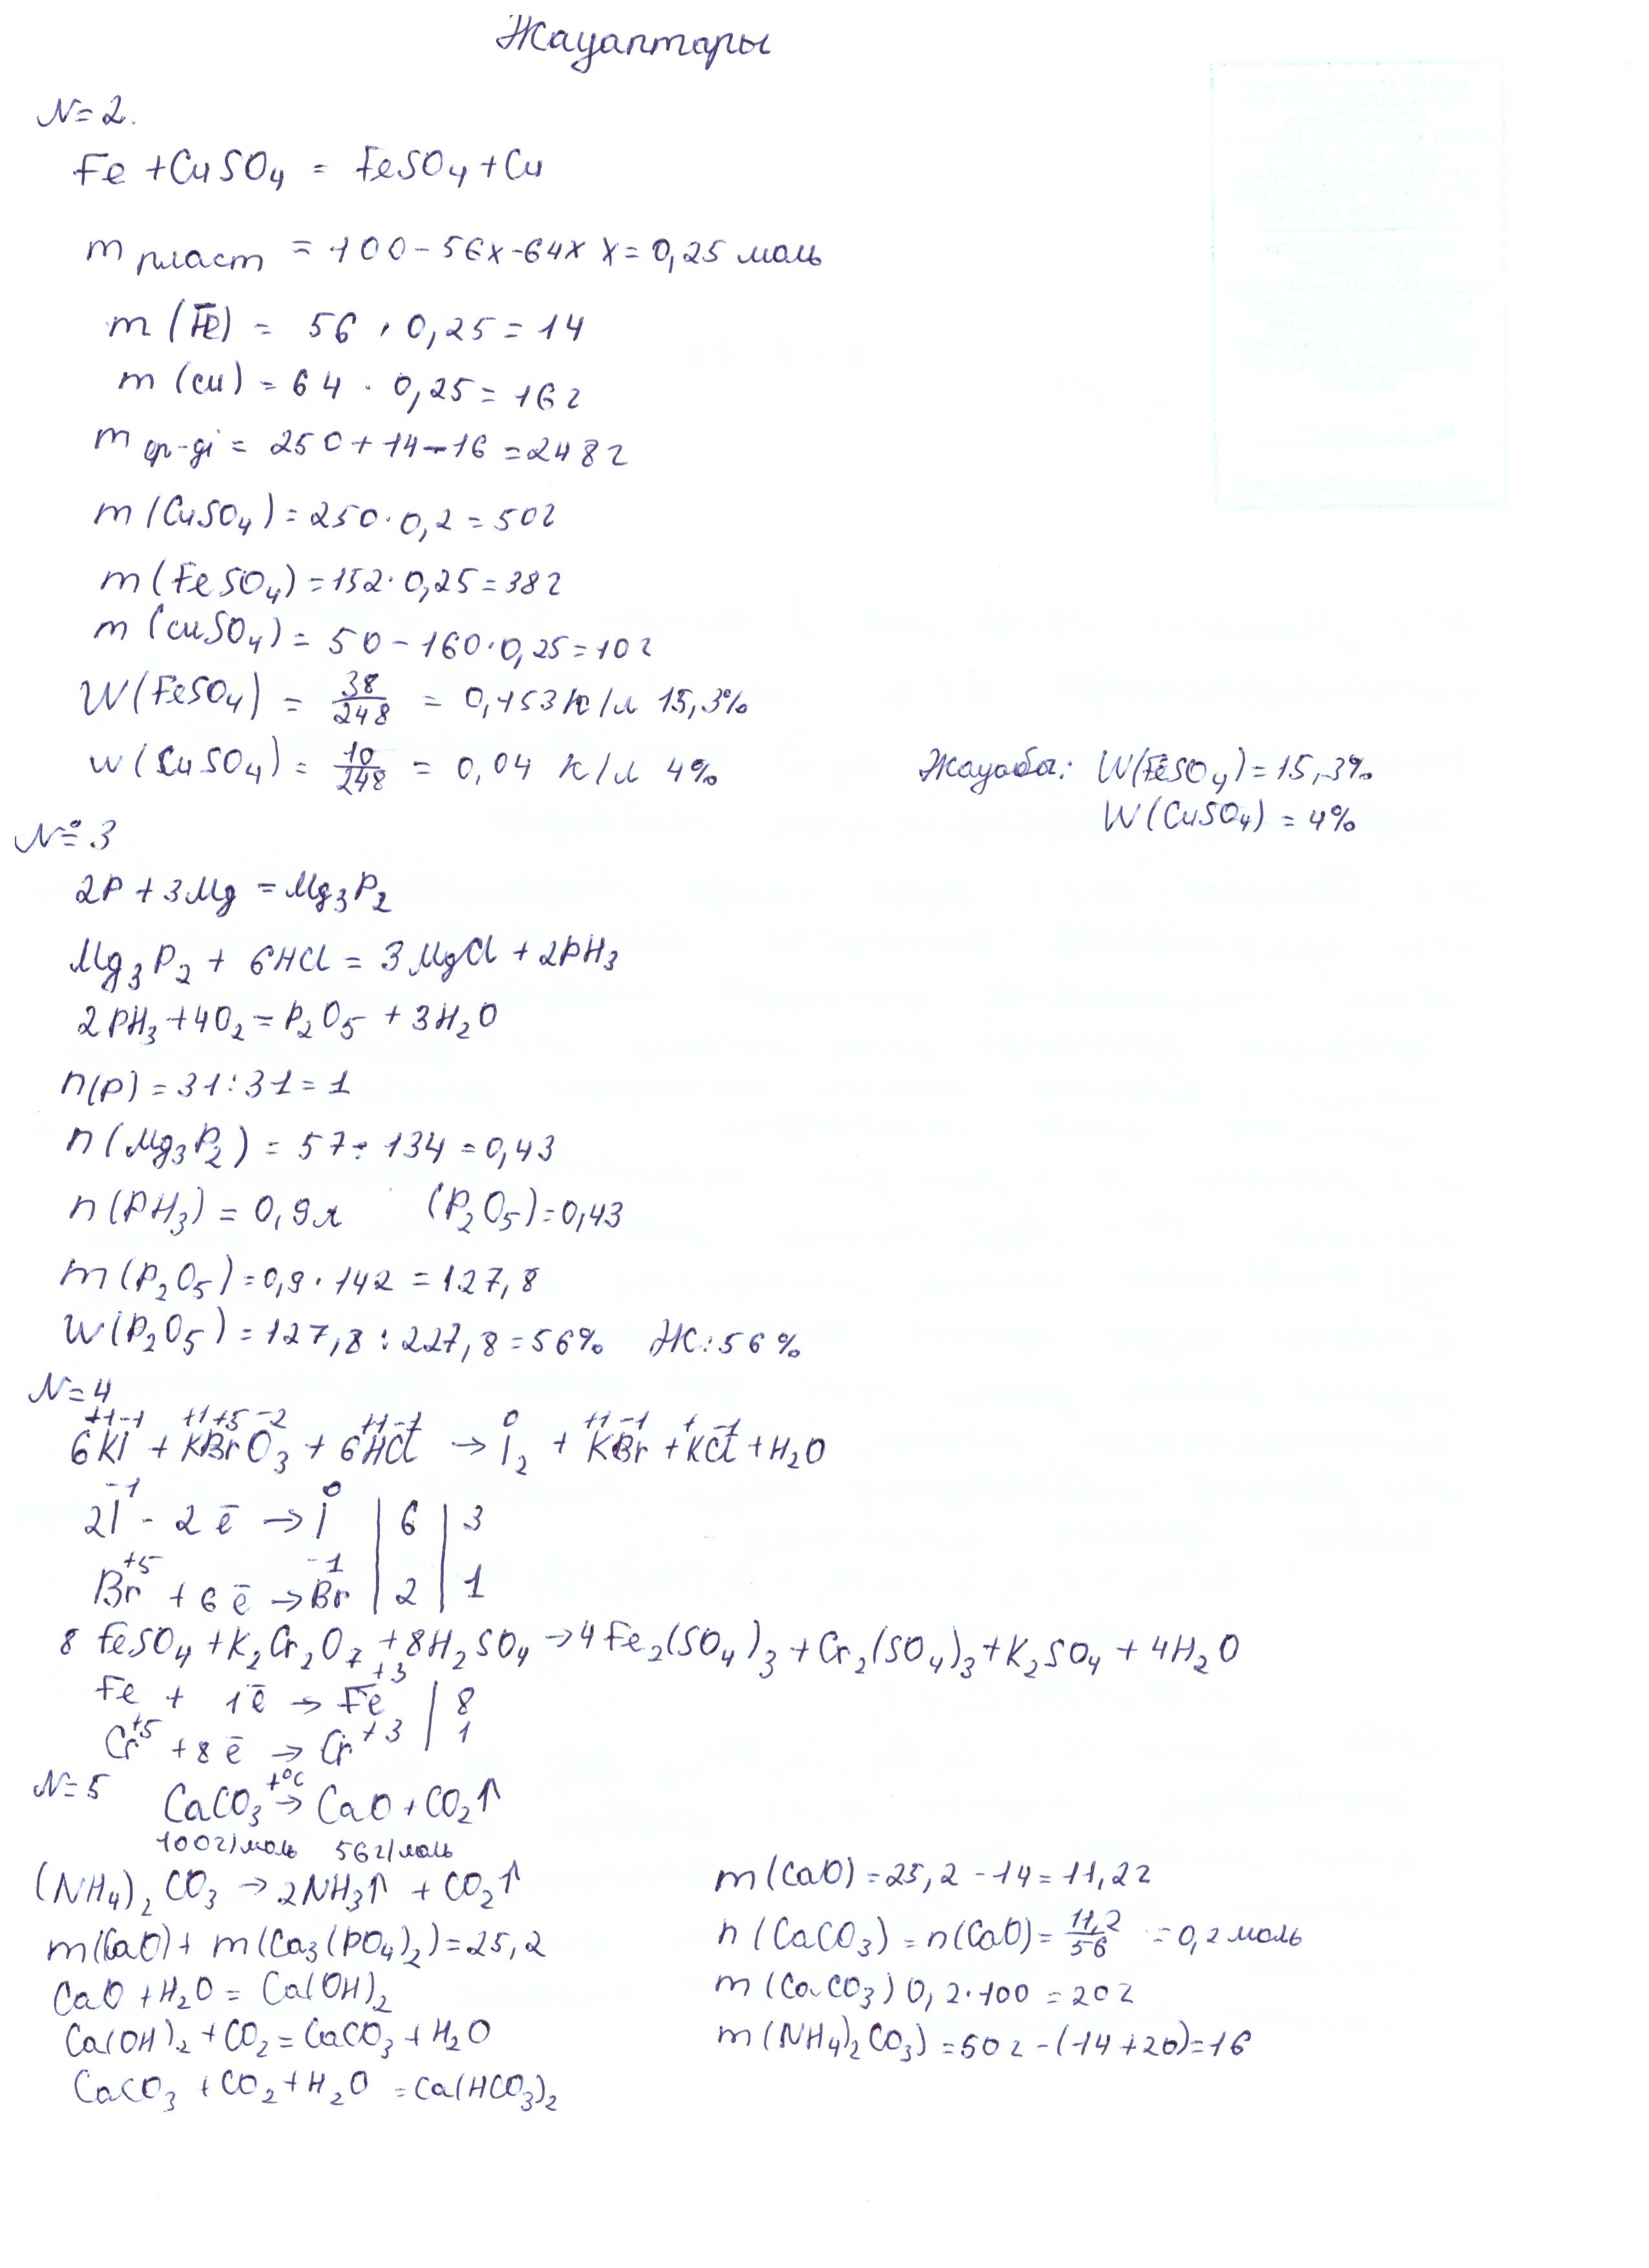 Жауаптары
N=2.
Fe + CuSO₄ = FeSO₄ + Cu
m пласт = 100 - 56x - 64x x = 0,25 моль
m (Fe) = 56 · 0,25 = 14
m (cu) = 64 · 0,25 = 16 г
m ер-ді = 250 + 14 - 16 = 248 г
m (CuSO₄) = 250 · 0,2 = 50 г
m (FeSO₄) = 152 · 0,25 = 38 г
m (cuSO₄) = 50 - 160 · 0,25 = 10 г
W (FeSO₄) = 38/248 = 0,153 к/л 15,3%
w (CuSO₄) = 10/248 = 0,04 к/л 4%
Жауабы: W(FeSO₄) = 15,3%
W (CuSO₄) = 4%
№ 3
2P + 3Mg = Mg₃P₂
Mg₃P₂ + 6HCl = 3MgCl + 2PH₃
2PH₃ + 4O₂ = P₂O₅ + 3H₂O
n(p) = 31 : 31 = 1
n (Mg₃P₂) = 57 : 134 = 0,43
n (PH₃) = 0,9 л (P₂O₅) = 0,43
m (P₂O₅) = 0,9 · 142 = 127,8
W (P₂O₅) = 127,8 : 227,8 = 56% Ж: 56%
N=4
+1 -1 +1 +5 -2 +1 -1 0 +1 -1 + -1
6KI + KBrO₃ + 6HCl → I₂ + KBr + KCl + H₂O
2I⁻¹ - 2ē → I⁰ | 6 | 3
Br⁺⁵ + 6ē → Br⁻¹ | 2 | 1
8 FeSO₄ + K₂Cr₂O₇ + 8H₂SO₄ → 4Fe₂(SO₄)₃ + Cr₂(SO₄)₃ + K₂SO₄ + 4H₂O
Fe + 1ē → Fe⁺³ | 8
Cr⁺⁵ + 8ē → Cr⁺³ | 1
N=5
CaCO₃ →(t°C) CaO + CO₂↑
100 г/моль 56 г/моль
(NH₄)₂CO₃ → 2NH₃↑ + CO₂↑
m(CaO) + m(Ca₃(PO₄)₂) = 25,2
CaO + H₂O = Ca(OH)₂
Ca(OH)₂ + CO₂ = CaCO₃ + H₂O
CaCO₃ + CO₂ + H₂O = Ca(HCO₃)₂
m (CaO) = 25,2 - 14 = 11,2 г
n (CaCO₃) = n(CaO) = 11,2/56 = 0,2 моль
m (CaCO₃) 0,2 · 100 = 20 г
m (NH₄)₂CO₃) = 50 г - (14 + 20) = 16